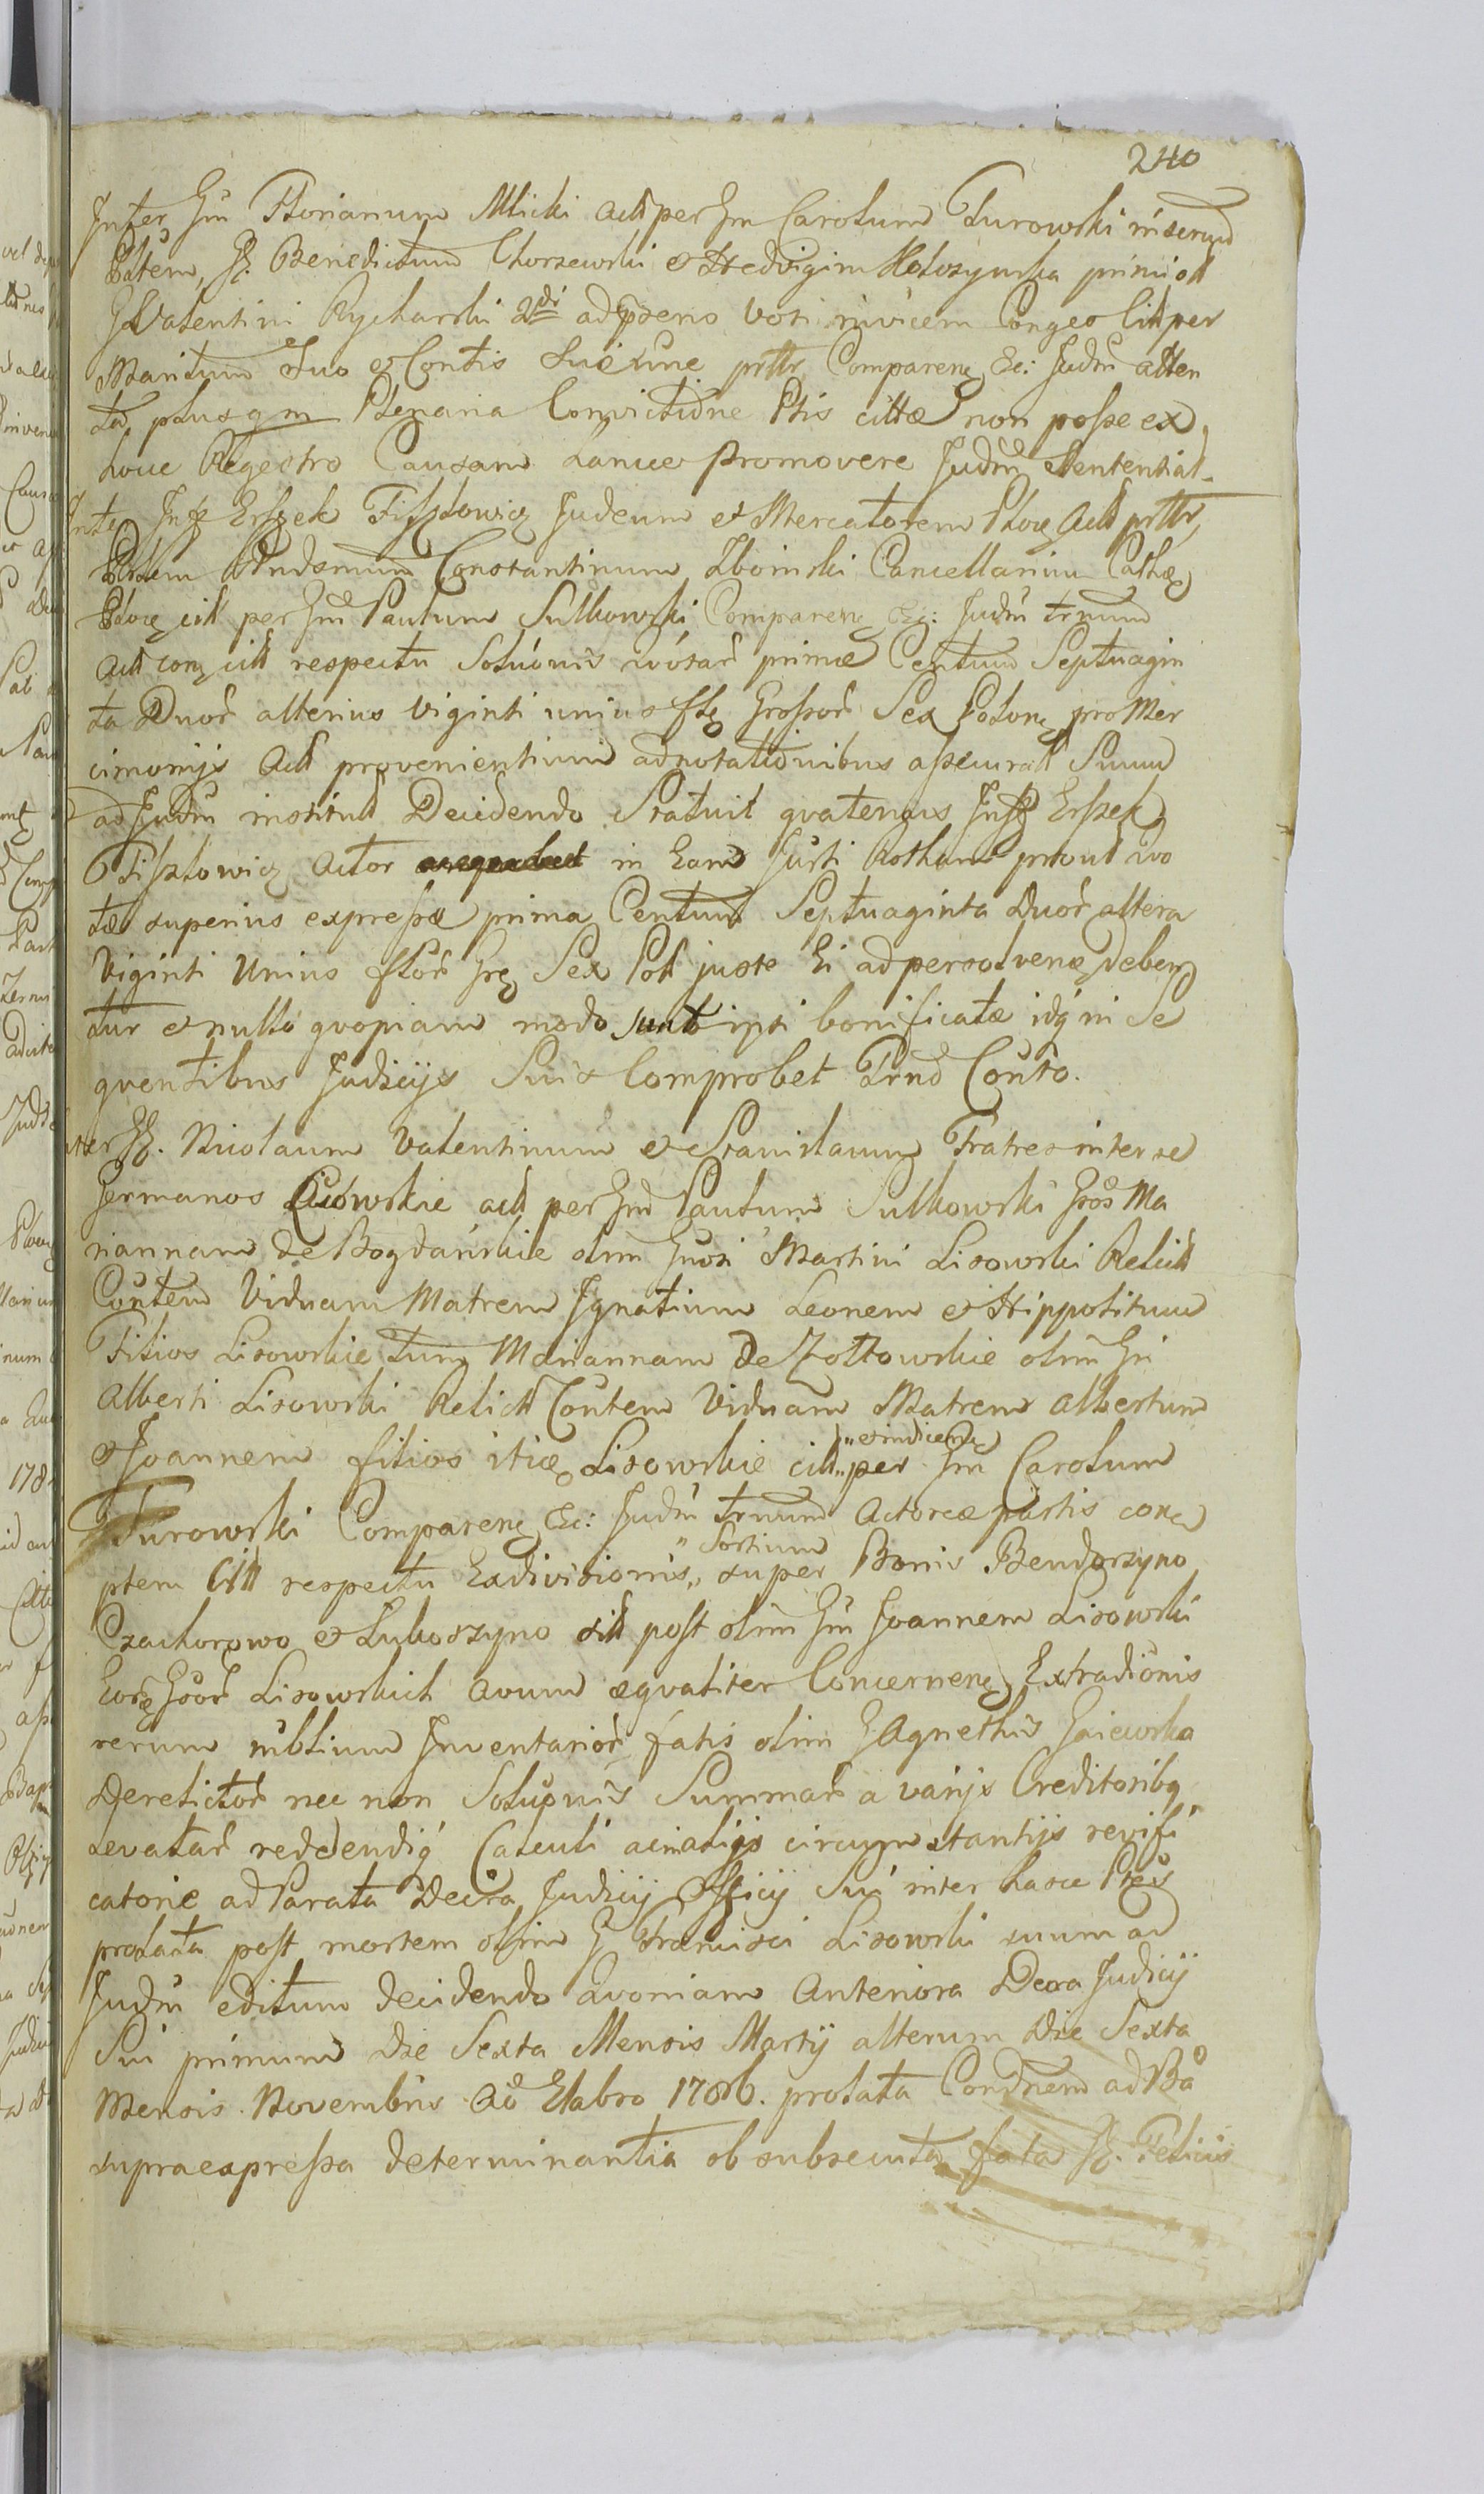 240
Inter Gm Florianum Mlicki Act per Gm Carolum Turowski inserund
Ptem, G. Benedictum Chorzewski et Hedvigim Holoszynska primi ol
G Valentini Rycharski 2di ad psens Voti invicem Conges Citt per
Maritum Suo et Contis Suæ nne prttr Comparen Ec: Judm atten
ta plusqm Plenaria Convictione Ptis cittæ non poſse ex
hocce Regestro Causam hancce promovere Judm Sentential
Inter Inf Erſzek Fiſzlowicz Judeum et Mercatorem Ploc Act prttr,
Ptem Rndsmum Constantinum Zboinski Cancellarium Cathæ
Ploc citt per Gm Paulum Sulkowski Comparen Ec: Judm trnum
Act con citt respectu Soluonis quotar primæ Centum Septuagin
ta Duor alterius Viginti unius fle Groſsor Sex Polon pro Mer
cimonijs Act provenientium adnotationibus aſsecuratt Suum
ad Judm institut Decidendo Statuit qvatenus Inf Erſzek
Fiſzlowicz Actor in Eam Jurti Rotham prout quo
tæ superius expreſsæ prima Centum Septuaginta Duor altera
Viginti Unius flor Gr Sex Poll juste Ei adpersolvenæ deben
tur et nullo qvopiam modo sunt ipsi bonificatæ idq in Se
qventibus Judicijs Suis Comprobet Trnd Conto.
Inter G. Nicolaum Valentinum et Stanislaum Fratres inter se
Germanos Lisowskie act per Gm Paulum Sulkowski Gros Ma
riannam de Bogdańskie olim Gnosi Martini Lisowski Relict
Contem Viduam Matrem Ignatium Leonem et Hippolitum
Filios Lisowskie tum Mariannam De Żołtowskie olim Gni
Alberti Lisowski Relict Contem Viduam Matrem Albertum
et Joannem filios itiæ Lisowskie citt „et indicen„ per Gm Carolum
Turowski Comparen Ec: Judm trnum Actoreæ partis con
ptem Citt respectu Exdivisionis „Sortium„ super Bonis Bendorzyno
Czachorowo et Lukoszyno sitt post olim Gm Joannem Lisowski
Eor Gror Lisowskich avum æqvaliter Concernen Extradionis
rerum mblium Inventarior fatis olim G Agnethis Gaiewska
Derelictor nec non Soluonis Summar a varijs Creditoribq
Levatar reddendiq Calculi ac in alijs circumstantijs revifi
catorie ad Parata Decra Judicij Officij Sui inter hasce Ptes
prolata post mortem olim G Francisci Lisowski suum ad
Judm editum decidendo Quoniam Anteriora Decra Judicij
Sui primum Die Sexta Mensis Martij alterum Die Sexta
Mensis Novembris Ao Elabro 1786. prolata Condnem ad Ba
supraexpreſsa determinantia ob subsecuta fata G. Felicis